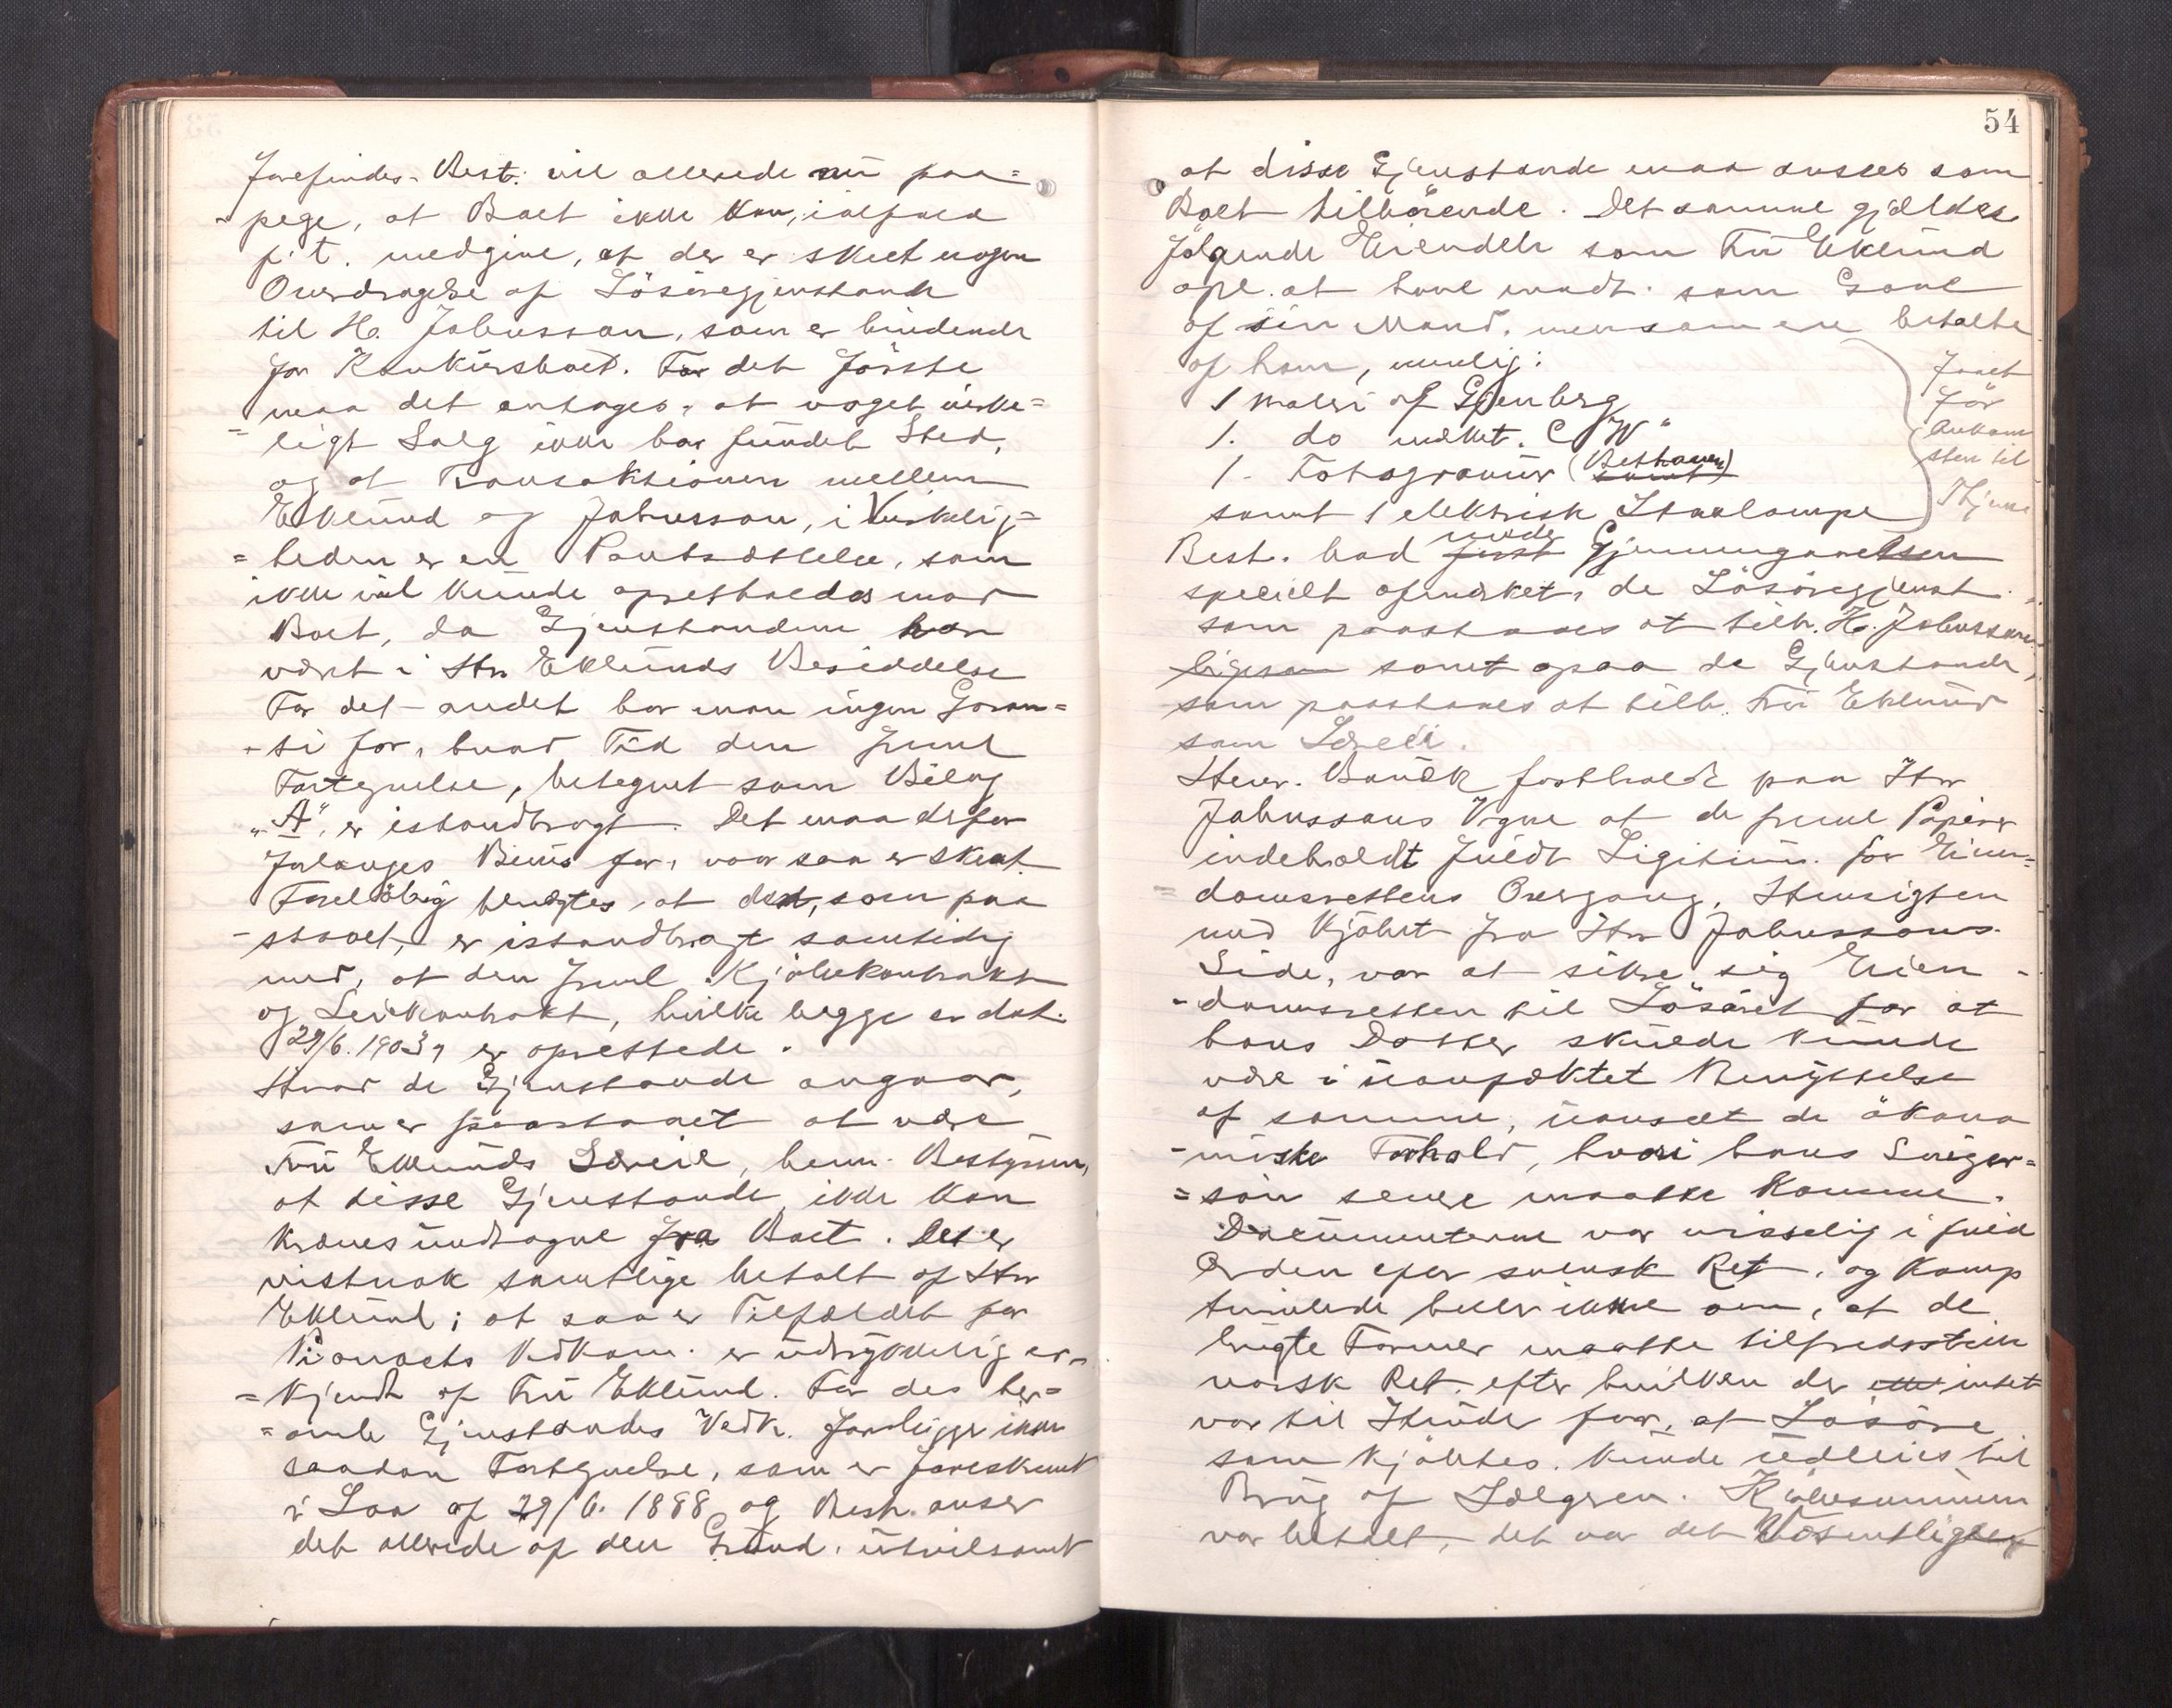 forefindes. Best. vil allerede nu paa=
pege, at Boet ikke kan, ialfald
p.t. medgive, at der er skeet nogen
Overdragelse af Lösöregjenstande
til H. Johnsson, som er bindende
for Konkursboet. For det förste
maa det antages, at noget virke=
=ligt Salg ikke har fundet Sted,
og at Transaktionen mellem
Eklund og Johnsson, i Virkelig=
=heden er en Pantsættelse, som
ikke vil kunde opretholdes mod
Boet, da Gjenstandene har
været i Hr Eklunds Besiddelse
For det andet har man ingen Garan=
-ti for, hvad Tid den freml
Fortegnelse, betegnet som Bilag
"A", er istandbragt. Det maa derfor
forlanges Bevis for, naar saa er skeet.
Foreløbig benægtes, at den, som paa
-staaet, er istandbragt samtidig
med, at den freml Kjöbekontrakt
og Leiekontrakt, hvilke begge er dat.
29/6. 1903, er oprettede.
Hvad de Gjenstande angaar,
som er paastaaet at være
Fru Eklunds Særeie, bem. Bestyreren,
at disse Gjenstande ikke kan
kræves undtagne fra Boet. Det er
vistnok samtlige betalt af Hr
Eklund; at saa er Tilfældet for
Pianoets Vedkom. er udtrykkelig er=
=kjendt af Fru Eklund. For des her=
=omh Gjenstandes Vedk. foreligger ikke
saadan Fortegnelse, som er foreskrevet
i Lov af 29/6. 1888 og Best. anser
det allerede af den Grund, utvilsomt
54
at disse Gjenstande maa ansees som
Boet tilhörende. Det samme gjælder
fölgende Eiendele som Fru Eklund
opl. at have modt. som Gave
af sin Mand, men som ere betalte
af ham, nemlig:
1 Maleri af Gjenberg
1. do mærket. C W"
1. Fotogravur (Bethoven)
samt 1 elektrisk Staalampe
faaet
för
Ankom
sten til
Best. had under Gjennemgaaelsen
specielt afmærket, de Lösöregjenst.
som paastaaes at tilh. H. Johnsson
ligesom samt opaa de Gjenstande,
som paastaaes at tilh. Fru Eklund
som Særeie.
Henr. Bauck fastholdt paa Hr
Johnssons Vegne at de freml Papirer
indeholdt fuldt Ligitim. for Eien=
=domsrettens Overgang, Hensigten
med Kjöbet fra Hr Johnssons
Side, var at sikre sig Eien-
-domsretten til Lösöret for at
hans Datter skulde kunde
være i uanfæktet Benyttelse
af samme, uanseet de ökono
-miske Forhold, hvori hans Sviger=
=sön senere maatte komme.
Documenterne var visselig i fuld
Orden efter svensk Ret, og Komp
tvivlede heller ikke om, at de
brugte Former maatte tilfredsstille
norsk Ret, efter hvilken der intet
var til Hinder for, at Lösöre
som kjöbtes, kunde udleies til
Brug af Sælgeren. Kjöbesummen
var betalt, det var det Væsentligste